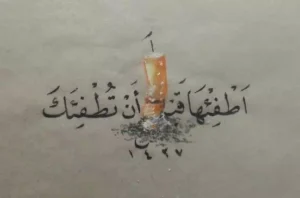 اَطْفِئْهَا قَبْلَ أَنْ تُطْفِئَكَ
١٤٢٧